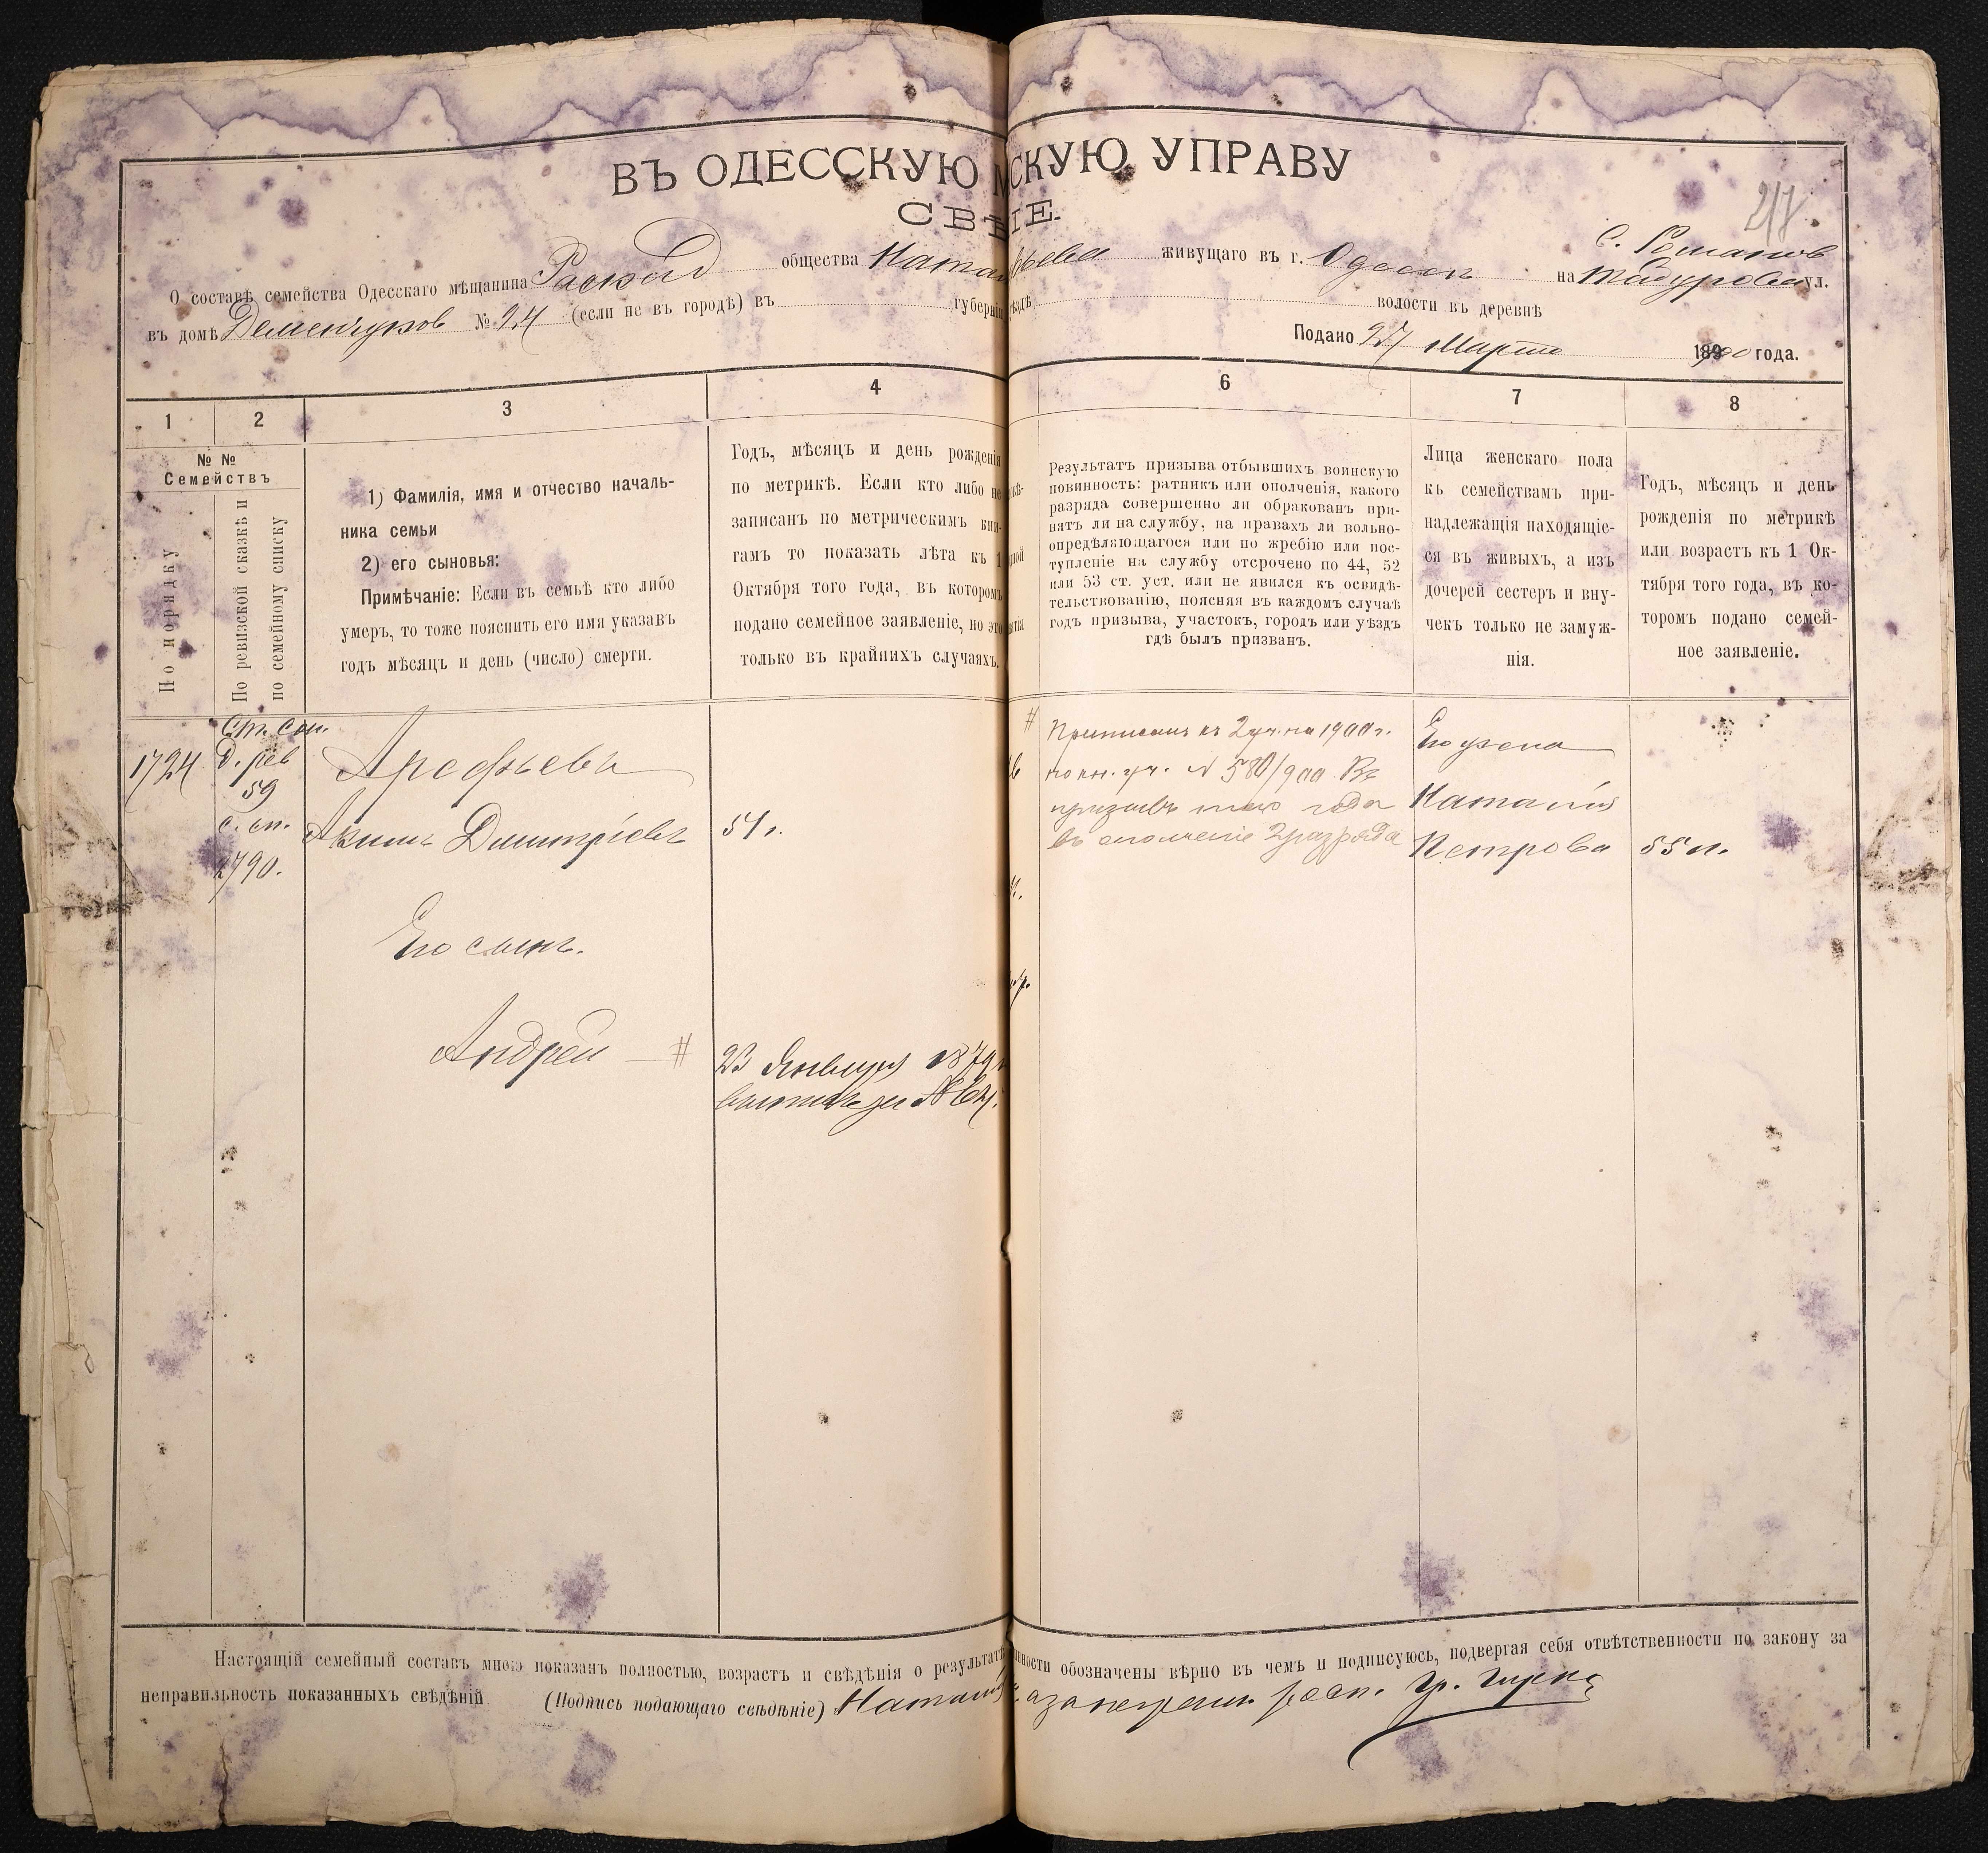 ВЪ ОДЕССКУЮ М СКУЮ УПРАВУ
СВѢ IE.
217
О составѣ семейства Одесскаго мѣщанина общества Ната фьева живущаго въ г. Одессѣ С. Романов
на ул.
въ домѣ Деменчуков № 24 (если не въ городѣ) въ губерніи ѣздѣ волости въ деревнѣ
Подано 27 Марта 1900 года.
1 2 3 4 6 7 8
№ №
Семействъ
По порядку
По ревизской сказкѣ и
по семейному списку
1) Фамилія, имя и отчество началь-
ника семьи
2) его сыновья:
Примѣчаніе: Если въ семьѣ кто либо
умеръ, то тоже пояснить его имя указавъ
годъ мѣсяцъ и день (число) смерти.
Годъ, мѣсяцъ и день рожденія
по метрикѣ. Если кто либо не
записанъ по метрическимъ кни-
гамъ то показать лѣта къ 1
Октября того года, въ которомъ
подано семейное заявленіе, но это
только въ крайнихъ случаяхъ.
Результатъ призыва отбывшихъ воинскую
повинность: ратникъ или ополченія, какого
разряда совершенно ли обракованъ при-
нятъ ли на службу, на правахъ ли вольно-
опредѣляющагося или по жребію или пос-
тупленіе на службу отсрочено по 44, 52
или 53 ст. уст. или не явился къ освидѣ-
тельствованію, поясняя въ каждомъ случаѣ
годъ призыва, участокъ, городъ или уѣздъ
гдѣ былъ призванъ.
Лица женскаго пола
къ семействамъ при-
надлежащія находящіе-
ся въ живыхъ, а изъ
дочерей сестеръ и вну-
чекъ только не замуж-
нія.
Годъ, мѣсяцъ и день
рожденія по метрикѣ
или возрастъ къ 1 Ок-
тября того года, въ ко-
торомъ подано семей-
ное заявленіе.
1724
Ст. сп.
д. рев
59
с. сп.
2790.
Арефьевъ
Акимъ Дмитріевъ
54 г.
Его сынъ.
Андрей — #
23 Января 1879
# Приписанъ къ 2 уч. на 1900 г.
по кн. уч. № 580/900 Въ
призывъ того года
въ ополченіе 2 разряда
Его жена
Наталія
Петрова
55 л.
Настоящій семейный составъ мною показанъ полностью, возрастъ и свѣдѣнія о результатѣ нности обозначены вѣрно въ чемъ и подписуюсь, подвергая себя отвѣтственности по закону за
неправильность показанныхъ свѣдѣній (Подпись подающаго свѣдѣніе)